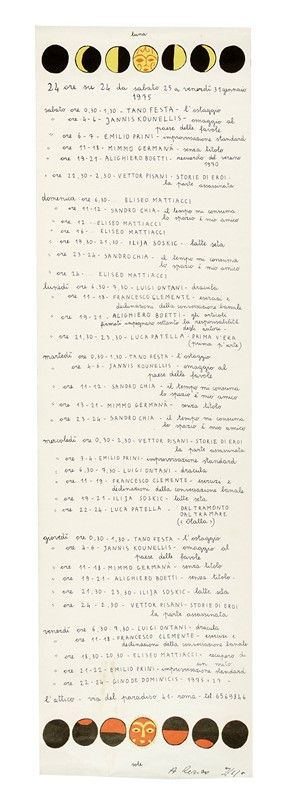 luna
24 ore su 24 da sabato 25 a venerdi 31 gennaio
1975
sabato ore 0,30-1,30 - TANO FESTA - l'ostaggio
" ore 4-6 - JANNIS KOUNELLIS - omaggio al
paese delle favole
" ore 6-7 - EMILIO PRINI - improvvisazione standard
" ore 11-18 - MIMMO GERMANÀ - senza titolo
" ore 19-21 - ALIGHIERO BOETTI - racconto del verano
1970
" ore 22,30-2,30 - VETTOR PISANI - STORIE DI EROI -
la parte assassinata
domenica ore 6,30- ELISEO MATTIACCI
" ore 11-12 - SANDRO CHIA - il tempo mi consuma
lo spazio è mio amico
" ore 12 - ELISEO MATTIACCI
" ore 16 - ELISEO MATTIACCI
" ore 19,30-21,30 - ILIJA SOSKIC - latte seta
" ore 23-24 - SANDRO CHIA - il tempo mi consuma
lo spazio è mio amico
" ore 24 - ELISEO MATTIACCI
lunedì ore 6,30-7,30 - LUIGI ONTANI - dracula
" ore 11-18 - FRANCESCO CLEMENTE - esercizi e
declinazioni della conversazione banale
" ore 19-21 - ALIGHIERO BOETTI - gli articoli
firmati impegnano soltanto la responsabilità
degli autori -
" ore 21,30-23,30 - LUCA PATELLA - PRIMA V'ERA
(prima p'arte)
martedì ore 0,30-1,30 - TANO FESTA - l'ostaggio
" ore 4-6 - JANNIS KOUNELLIS - omaggio al
paese delle favole
" ore 11-12 - SANDRO CHIA - il tempo mi consuma
lo spazio è mio amico
" ore 13-21 - MIMMO GERMANÀ - senza titolo
" ore 23-24 - SANDRO CHIA - il tempo mi consuma
lo spazio è mio amico
mercoledì ore 0,30-2,30 - VETTOR PISANI - STORIE DI EROI
la parte assassinata
" ore 3-4 - EMILIO PRINI - improvvisazione standard
" ore 6,30-7,30 - LUIGI ONTANI - dracula
" ore 11-19 - FRANCESCO CLEMENTE - esercizi e
declinazioni della conversazione banale
" ore 19-21 - ILIJA SOSKIC - latte seta
" ore 22-24 - LUCA PATELLA - DAL TRAMONTO
DAL TRAMARE
giovedì ore 0,30-1,30 - TANO FESTA - l'ostaggio
" ore 4-6 - JANNIS KOUNELLIS - omaggio al
paese delle favole
" ore 11-18 - MIMMO GERMANÀ - senza titolo
" ore 19-21 - ALIGHIERO BOETTI - senza titolo -
" ore 21,30-23,30 - ILIJA SOSKIC - latte seta
" ore 24-2,30 - VETTOR PISANI - STORIE DI EROI
la parte assassinata
venerdì ore 6,30-7,30 - LUIGI ONTANI - dracula
" ore 11-18 - FRANCESCO CLEMENTE - esercizi e
declinazioni della conversazione banale
" ore 18,30-20,30 - ELISEO MATTIACCI - recupero di
un mito
" ore 21-22 - EMILIO PRINI - improvvisazione standard
" ore 22-24 - GINO DE DOMINICIS - 1975 +
l'attico - via del paradiso 41 - roma - tel 6569846
sole